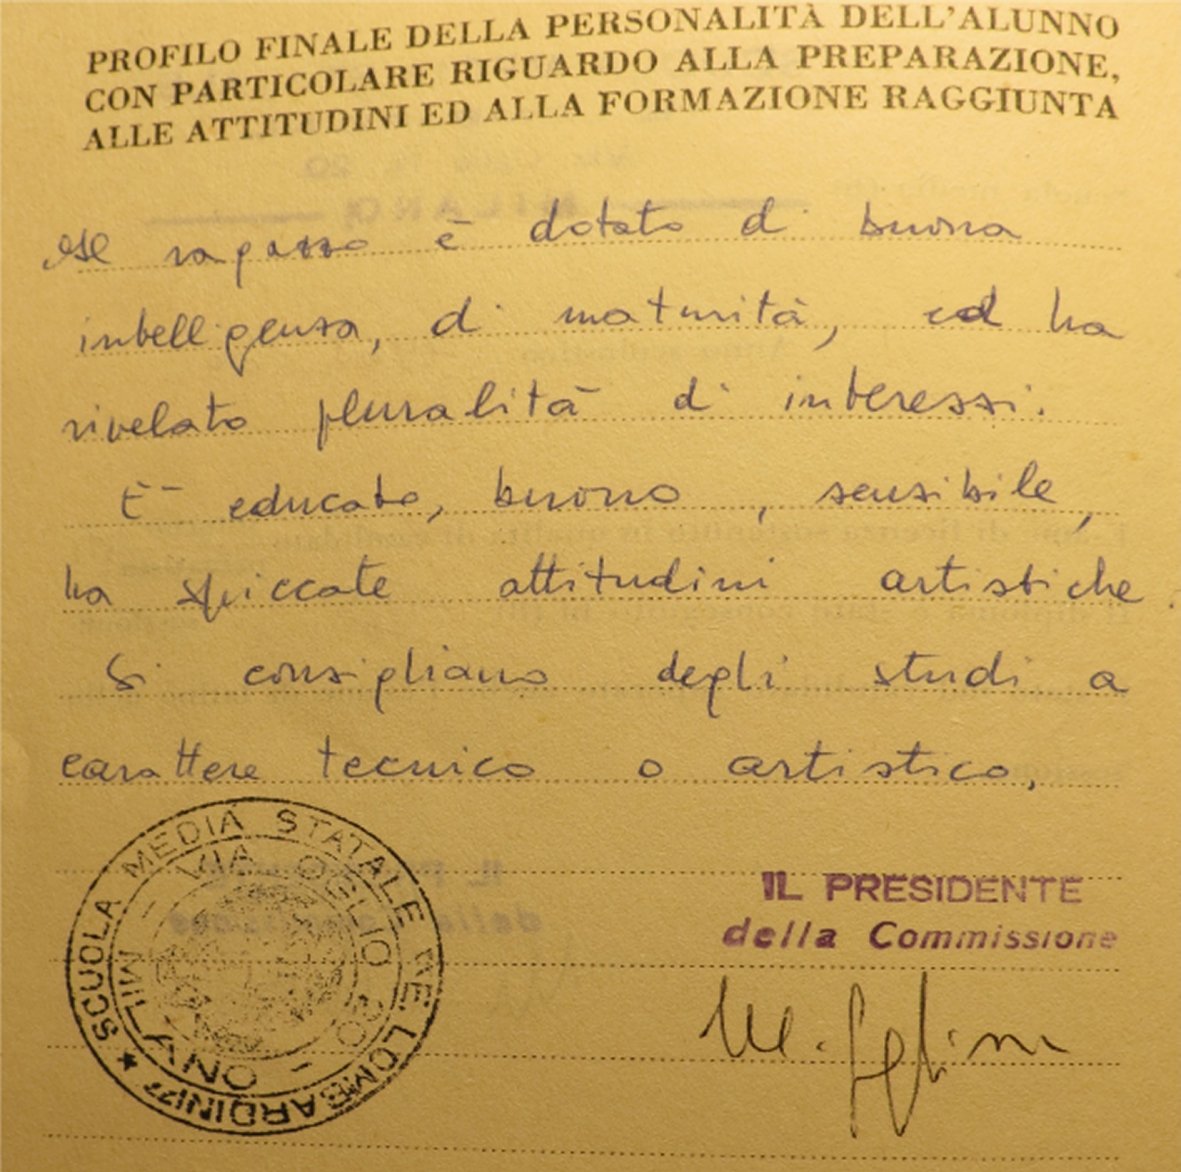 PROFILO FINALE DELLA PERSONALITÀ DELL'ALUNNO
CON PARTICOLARE RIGUARDO ALLA PREPARAZIONE,
ALLE ATTITUDINI ED ALLA FORMAZIONE RAGGIUNTA
Il ragazzo è dotato di buona
intelligenza, di maturità, ed ha
rivelato pluralità di interessi.
È educato, buono, sensibile,
ha spiccate attitudini artistiche.
Si consigliano degli studi a
carattere tecnico o artistico,
IL PRESIDENTE
della Commissione
SCUOLA MEDIA STATALE LOMBARDINI
VIA OGLIO 20 - MILANO -